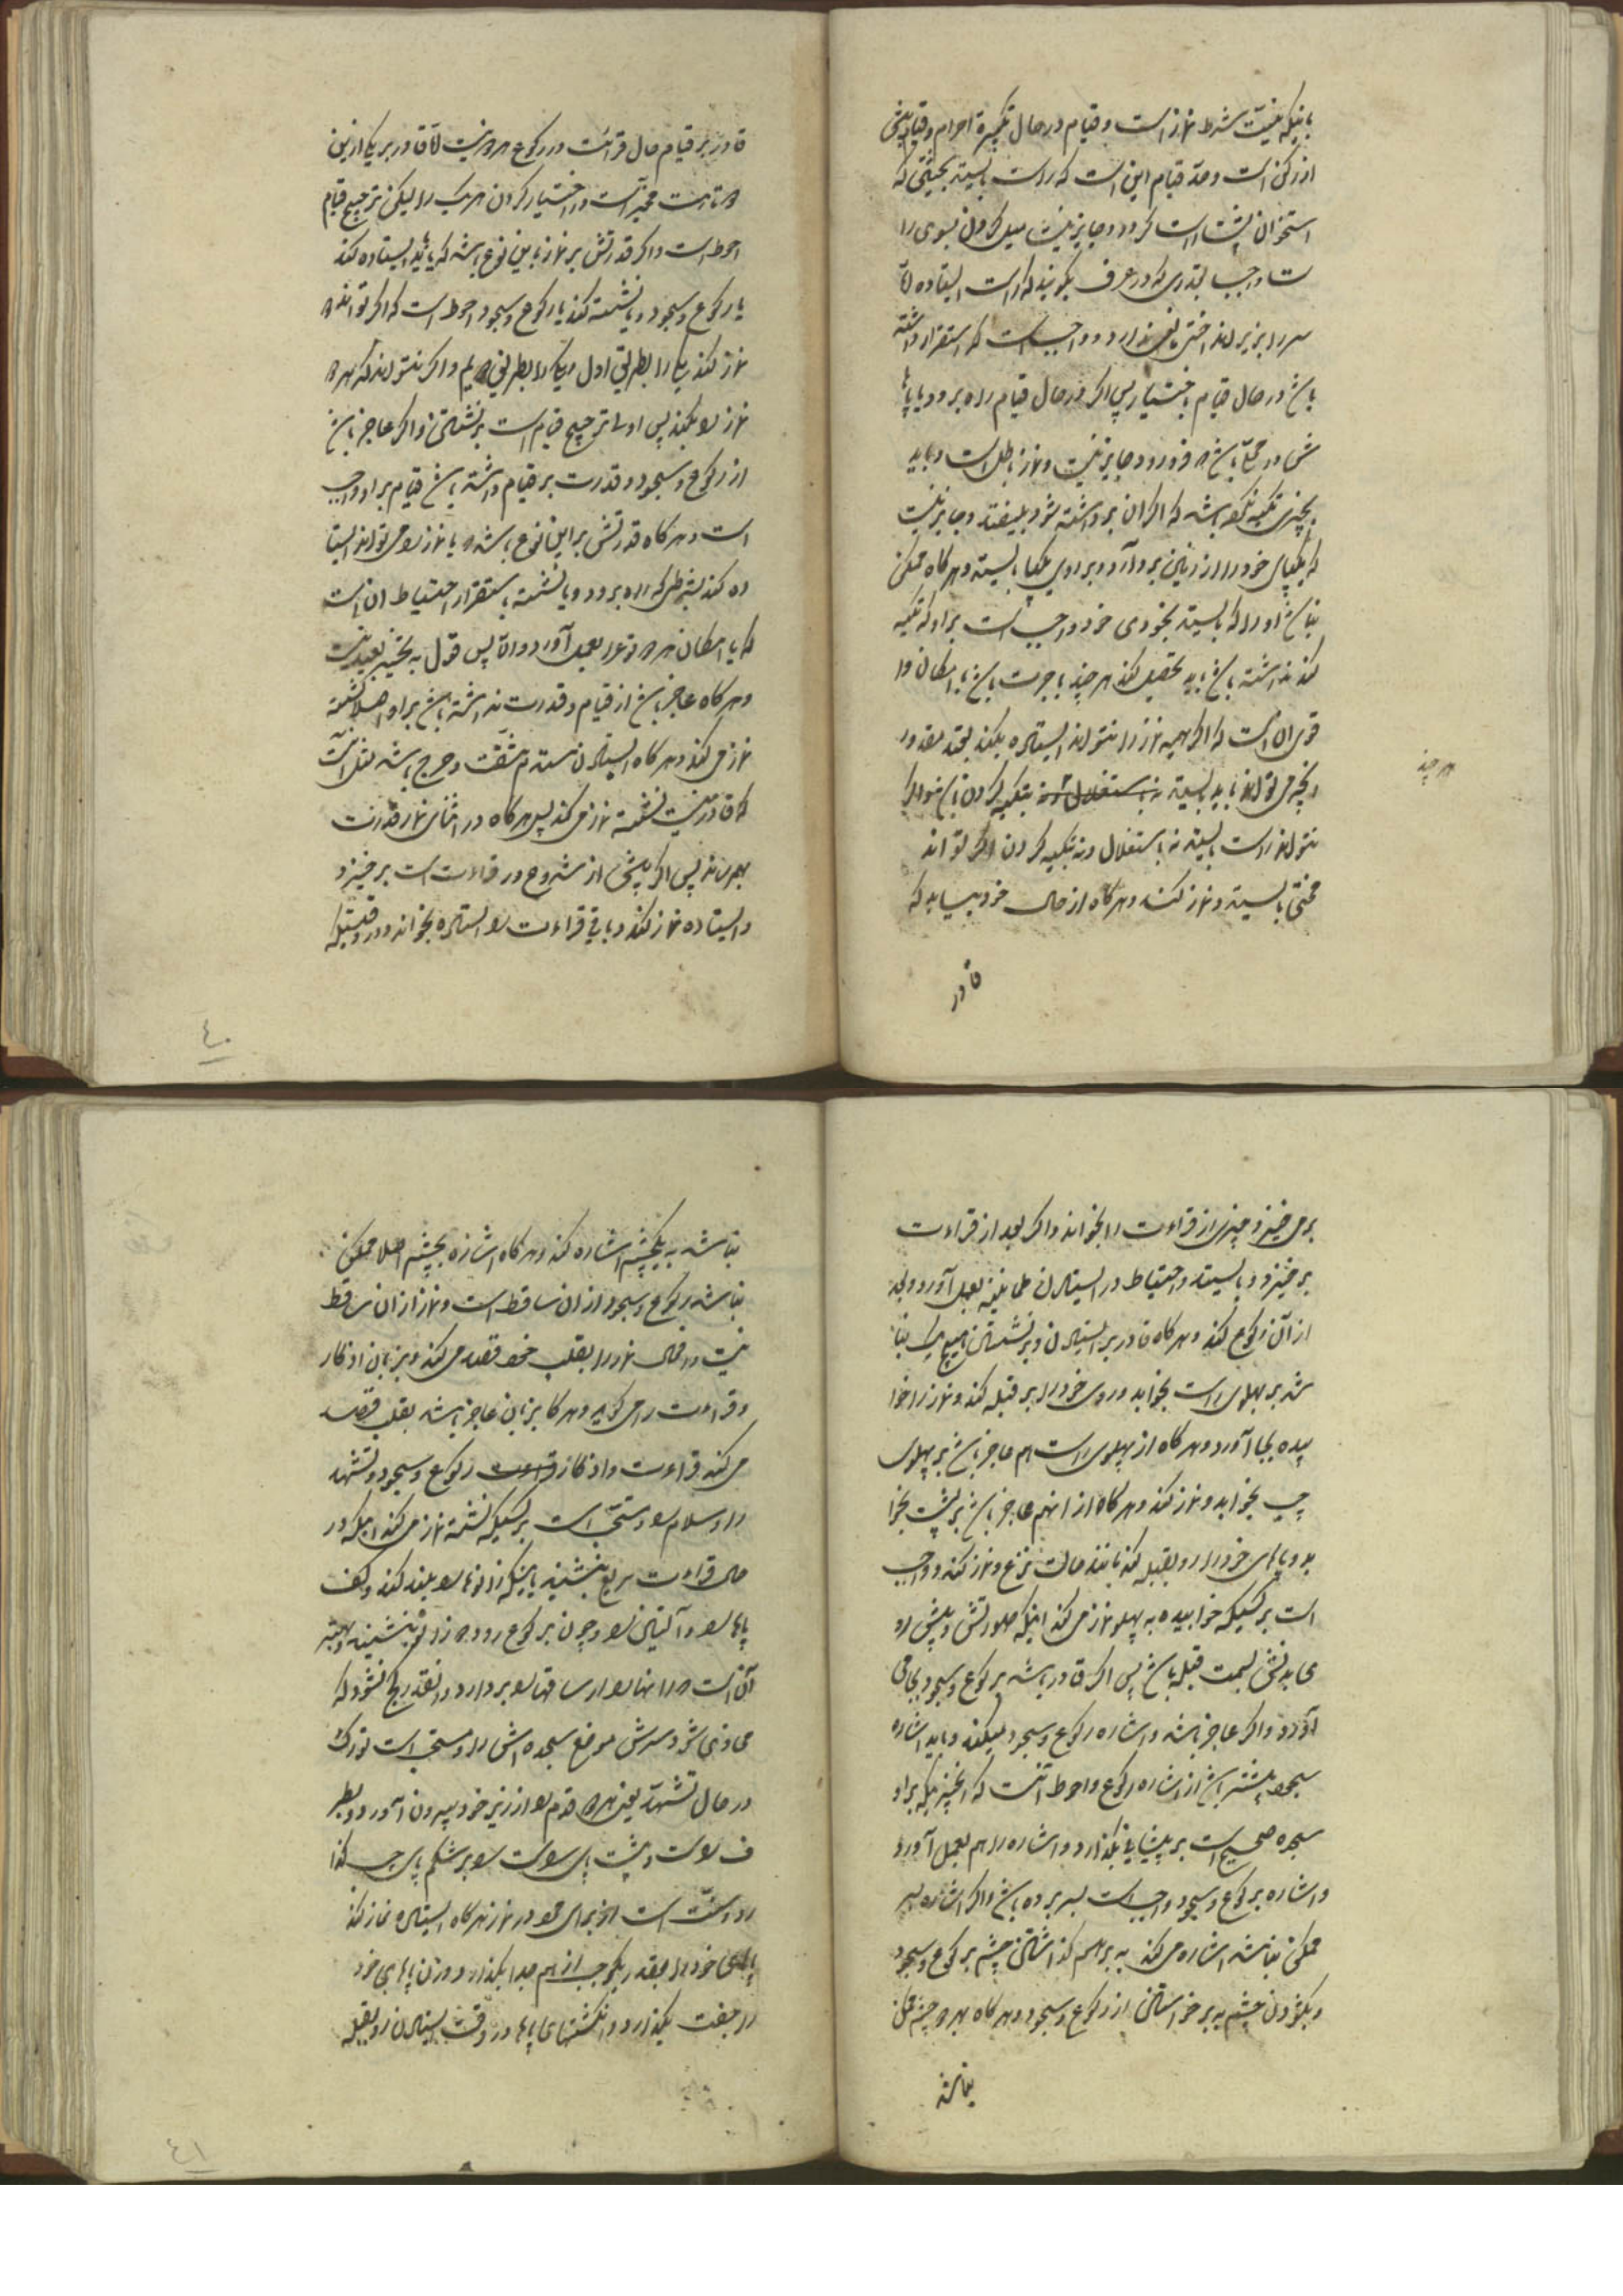 باینکه نیت شرط نماز است و قیام در حال تکبیرة احرام و قیام
از رکن است و حدّ قیام این است که راست بایستد بحیثیتی که
استخوان پشت راست کردد و جایز نیست میل کردن بسوی را
ست و چپ بقدری که در عرف بکویند که راست ایستاده لا
سر را بزیر انداختن نقص ندارد و واجب است که استقرار داشته
باشد در حال قیام باختیار پس اکر در حال قیام راه برود یا پاها
ش در محلی باشد فرو رود جایز نیست و نماز باطل است و باید
بچیزی تکیه نکرده باشد که اکر آن برداشته شود بیفتد و جایز نیست
که یکپای خود را از زمین بردارد و بر روی یکپا بایستد و هر کاه ممکن
نباشد او را که بایستد بخودی خود واجب است بر او که تکیه
کند نداشته باشد باید تحصیل کند هر چند باجرت باشد با امکان وا
قوی آن است که اکر همهٔ نماز را نتواند ایستاده بکند بقدر مقدور
هر چند
انچه می تواند باید بایستد نه باستقلال و نه بتکیه کردن
نتواند راست بایستد نه باستقلال و نه بتکیه کردن اکر تواند
منحنی بایستد و نماز کند و هر کاه از حال خود بیابد که
قادر
قادر بر قیام حال قرائت و رکوع هر دو نیست لا قادر بر یکی از این
دو تا هست مخیر است در اختیار کردن هر یک را لیکن ترجیح قیام
احوط است و اکر قدرتش بر نماز باین نوع باشد که یا باید ایستاده کند
با رکوع و سجود و یا نشسته کند با رکوع و سجود احوط است که اکر تواند دو
نماز کند یکی را بطریق اول و یکی را بطریق دویم و اکر نتواند که هر دو
نماز را بکند پس اولا ترجیح قیام است بر نشستن و اکر عاجز باشد
از رکوع و سجود و قدرت بر قیام داشته باشد قیام بر او واجب
است و هر کاه قدرتش بر این نوع باشد که یا نماز را می تواند ایستا
ده کند بشرطی که راه برود و یا نشسته باستقرار احتیاط آن است
که با امکان هر دو نوع را بعمل آورد والا پس قول به تخییر بعید نیست
و هر کاه عاجز باشد از قیام و قدرت نداشته باشد بر او اصلا نشسته
نماز می کند و هر کاه ایستادن مستلزم مشقت و حرج باشد مثل آنست
که قادر نیست نشسته نماز می کند پس هر کاه در اثنای نماز قدرت
بهم رساند پس اکر پیش از شروع در قراءت است برخیزد
و ایستاده نماز کند و باقی قراءت را ایستاده بخواند و در وقتیکه
٤٠
بر می خیزد چیزی از قراءت را نخواند و اکر بعد از قراءت
برخیزد و بایستد و احتیاط در ایستادن طمانینه بعمل آورد و بعد
از آن رکوع کند و هر کاه قادر بر ایستادن و بر نشستن هیچ یک نبا
شد بر پهلوی راست بخوابد و روی خود را بر قبله کند و نماز را خوا
بیده بجا آورد و هر کاه از پهلوی راست هم عاجز باشد بر پهلوی
چپ بخوابد و نماز کند و هر کاه از انهم عاجز باشد بر پشت بخوا
بد و پاهای خود را رو بقبله کند مانند حالت نزع و نماز کند و واجب
است بر کسیکه خوابیده به پهلو نماز می کند اینکه صورتش و پیش رو
ی بدنش بسمت قبله باشد پس اکر قادر باشد بر رکوع و سجود بجا می
آورد و اکر عاجز باشد و اشاره رکوع و سجود میکند و باید اشاره
سجود بیشتر باشد از اشاره رکوع و احوط آنست که انچیزیکه بر او
سجده صحیح است بر پیشانی بکذارد و اشاره را هم بعمل آورد
و اشاره بر رکوع و سجود واجب است بسر بوده باشد و اکر اشاره بسر
ممکن نباشد اشاره می کند به بر هم کذاشتن چشم بر رکوع و سجود
و بکشودن چشم به برخواستن از رکوع و سجود و هر کاه بهر دو چشم ممکن
نباشد
نباشد به یکچشم اشاره کند و هر کاه اشاره بچشم اصلا ممکن
نباشد رکوع و سجود از ان ساقط است و نماز از ان ساقط
نیست و افعال نماز را بقلب خود قصد می کند و بزبان اذکار
و قراءت را می کوید و هر کاه بزبان عاجز باشد بقلب قصد
می کند قراءت و اذکار رکوع و سجود و تشهد
را و سلام را و مستحب است بر کسیکه نشسته نماز می کند اینکه در
حال قراءت مربع بنشیند باینکه زانوها را بلند کند و کف
پاها را و آلیتین را و چون بر کوع رود دو زانو بنشیند و بهتر
آن است که رانها را از ساقها را بردارد و انقدر کج شود که
محاذی شود سرش موضع سجده اش را و مستحب است تورک
در حال تشهد یعنی هر دو قدم را از زیر خود بیرون آورد و بطر
ف راست و پشت پای راست را بر شکم پای چپ کذا
رد و سنت است از برای مرد در نماز هر کاه ایستاده نماز کند
پاهای خود را بقدر یکوجب از هم جدا بکذارد و زن پاهای خود
را جفت بکذارد و انکشتهای پاها در وقت ایستادن رو بقبله
٤١